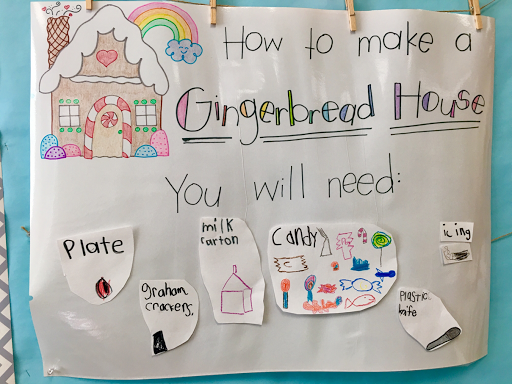 How to make a
Gingerbread House
You will need:
Plate
graham
crackers,
milk
carton
candy
icing
plastic
knife